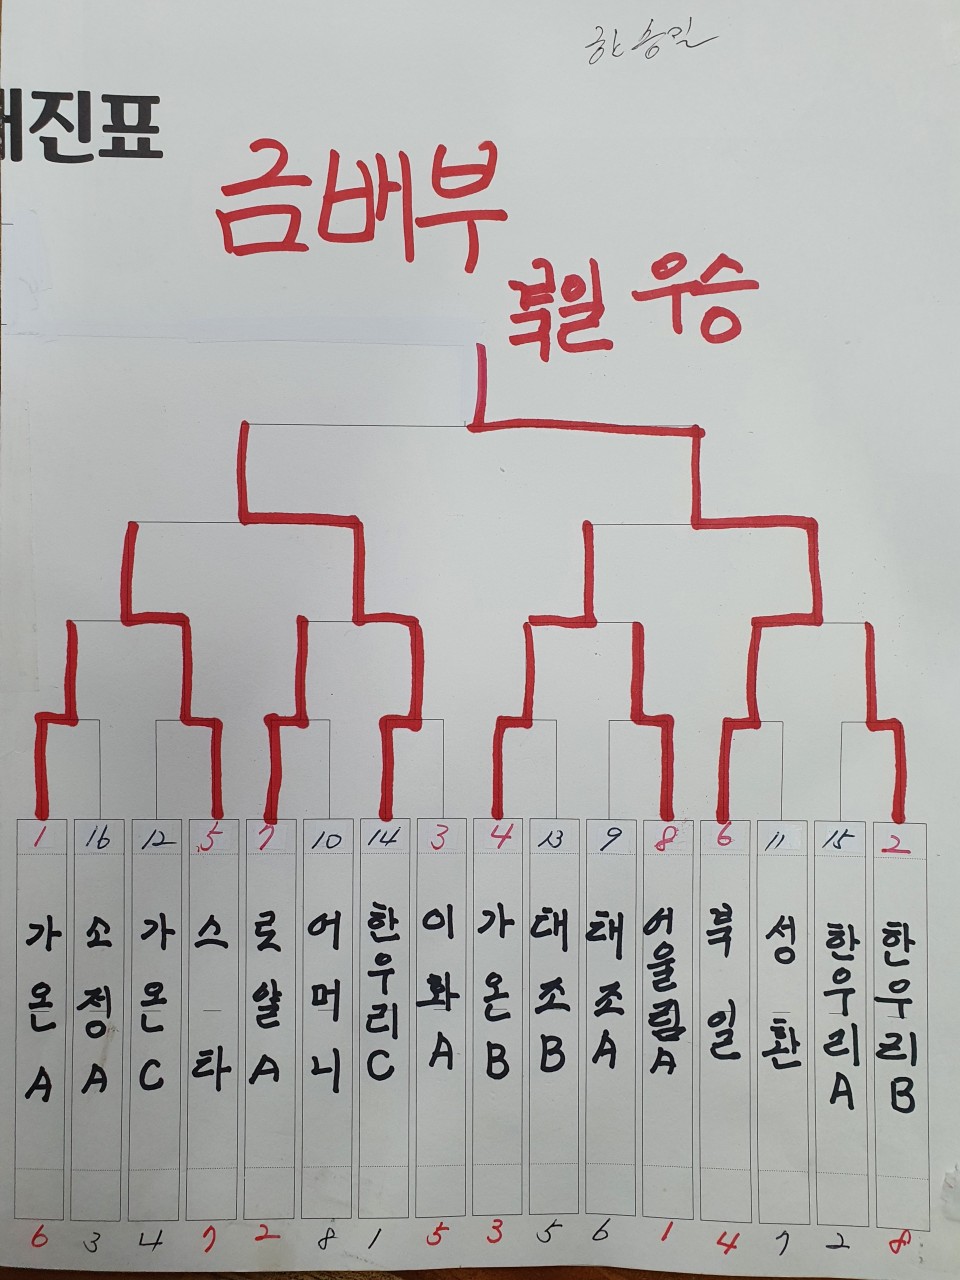 한용일
대진표
금배부
북일 우승
1 16 12 5 7 10 14 3 4 13 9 8 6 11 15 2
가온A
소정A
가온C
스타
로얄A
어머니
한우리C
이화A
가온B
태조B
태조A
어울림A
북일
성환
한우리A
한우리B
6 3 4 7 2 8 1 5 3 5 6 1 4 7 2 8